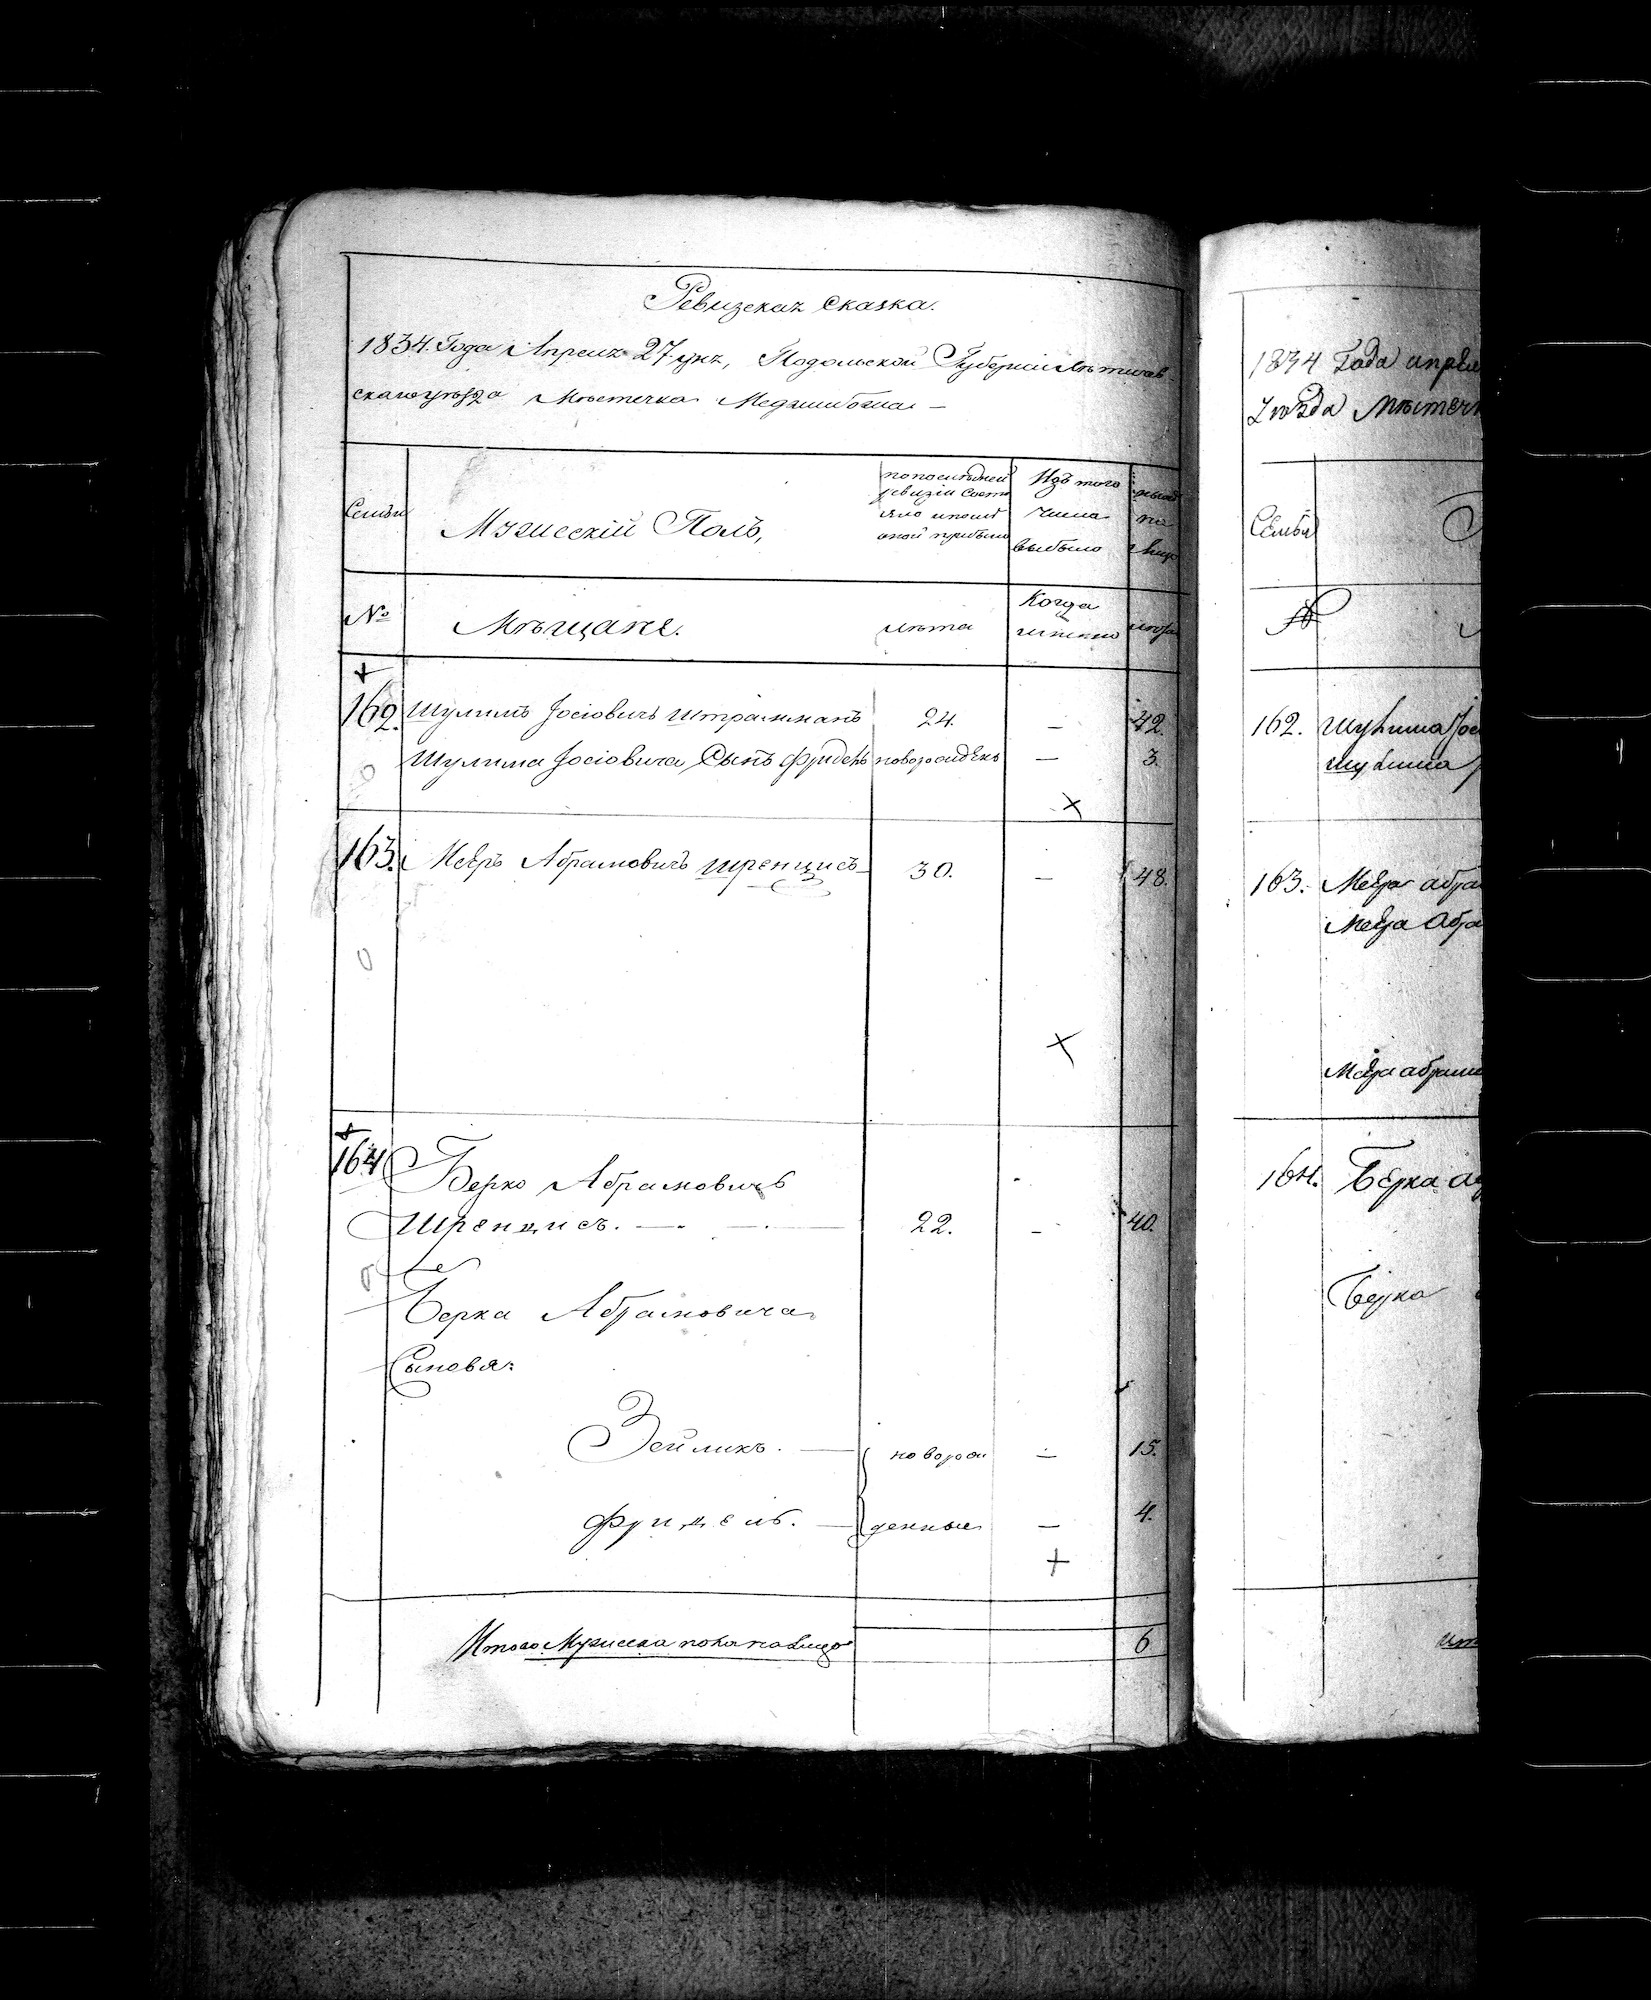 Ревизская Сказка.
1834. Года Апреля 27 дня, Подольской Губерніи Летичев-
скаго уѣзда Мѣстечка Меджибожа –
Семьи
Мужескій Полъ,
по послѣдней
ревизіи состо
яло и послѣ
оной прибыло
Изъ того
числа
выбыло
нынѣ
на
лицо
№
Мѣщане.
лѣта
Когда
именно
лѣта
162.
Шулимъ Іосіовичъ Штрамманъ
24.
–
42.
Шулима Іосіовича Сынъ Фридель
новорожденъ
–
3.
163.
Мееръ Абрамовичъ Шренцисъ
30.
–
48.
164
Берко Абрамовичъ
Шренцисъ. –
22.
–
40.
Берка Абрамовича
Сыновья:
Зейликъ. –
новорож
–
15.
Фридель. –
денные
–
4.
Итого Мужеска пола на лицо
6
1834 Года апрѣл
Уѣзда Мѣстеч
Семьи
№
162. Шулима Іос
Шулима
163. Меера абра
Меера Абра
Меера абрам
164. Берка а
Берка